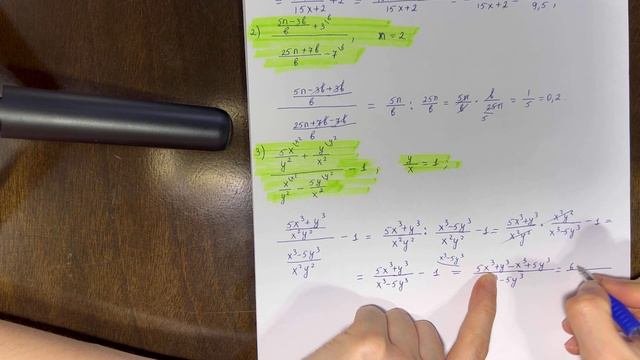 15x+2 + 2 = 15x+2 15x+2 9,5;
2) (5n-3b)/b + 3^b / (25n+7b)/b - 7^b ; n = 2.
(5n-3b+3b)/b / (25n+7b-7b)/b = 5n/b : 25n/b = 5n/b · b/25n 5 = 1/5 = 0,2.
3) (5x/y² + y/x²) / (x/y² - 5y/x²) - 1 ; y/x = 1 ;
(5x³+y³)/(x²y²) / (x³-5y³)/(x²y²) - 1 = (5x³+y³)/(x²y²) : (x³-5y³)/(x²y²) - 1 = (5x³+y³)/(x²y²) · (x²y²)/(x³-5y³) - 1 =
= (5x³+y³)/(x³-5y³) - 1^(x³-5y³) = (5x³+y³-x³+5y³)/(-5y³) =